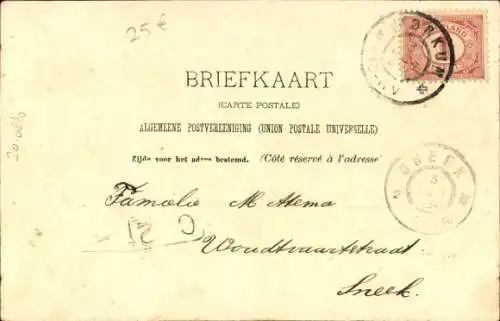 25 €
WORKUM
BRIEFKAART
(CARTE POSTALE)
ALGEMEENE POSTVEREENIGING (UNION POSTALE UNIVERSELLE)
Zijde voor het adres bestemd. (Côté réservé à l'adresse)
SNEEK
5
Familie M Atema
C 51
Woudtvaartstraat
Sneek.